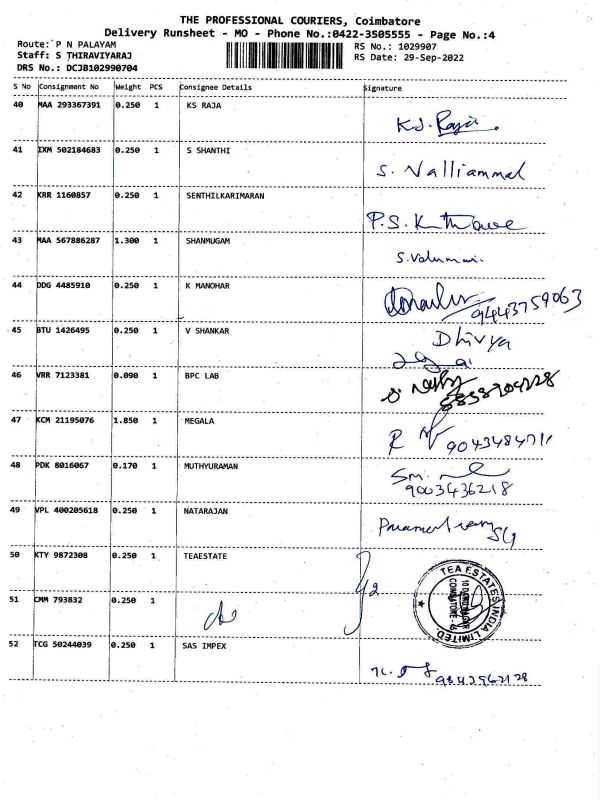 THE PROFESSIONAL COURIERS, Coimbatore
Delivery Runsheet - MO - Phone No.:0422-3505555 - Page No.:4
Route: P N PALAYAM RS No.: 1029907
Staff: S THIRAVIYARAJ RS Date: 29-Sep-2022
DRS No.: DCJB102990704
S No Consignment No Weight PCS Consignee Details Signature
40 MAA 293367391 0.250 1 KS RAJA
K.S. Raja
41 IXM 502184683 0.250 1 S SHANTHI
S. Valliammal
42 KRR 1160857 0.250 1 SENTHILKARIMARAN
P.S.K
43 MAA 567886287 1.300 1 SHANMUGAM
44 DDG 4485910 0.250 1 K MANOHAR
9443759063
45 BTU 1426495 0.250 1 V SHANKAR
Dhivya
46 VRR 7123381 0.090 1 BPC LAB
47 KCM 21195076 1.850 1 MEGALA
48 PDK 8016067 0.170 1 MUTHYURAMAN
Sm.
9003436218
49 VPL 400205618 0.250 1 NATARAJAN
50 KTY 9872308 0.250 1 TEAESTATE
TEA ESTATES INDIA LIMITED.
COIMBATORE
51 CMM 793832 0.250 1
52 TCG 50244039 0.250 1 SAS IMPEX
9843962128